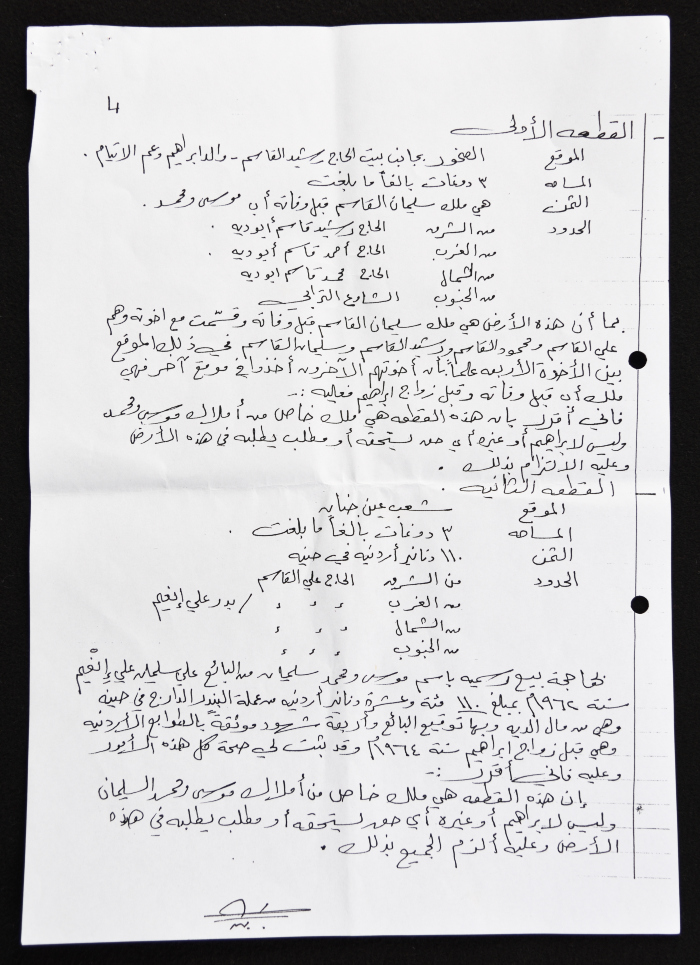 ٤
القطعه الأولى
الموقع الصخور بجانب بيت الحاج رشيد القاسم - والد ابراهيم وعم الايتام .
المساحه ٣ دونمات بالغاً ما بلغت
الثمن هي ملك سليمان القاسم قبل وفاته أب موسى ومحمد .
الحدود من الشرق الحاج رشيد قاسم أبوديه .
من الغرب الحاج أحمد قاسم أبوديه .
من الشمال الحاج محمد قاسم ابوديه
من الجنوب الشارع الترابي
بما أن هذه الأرض هي ملك سليمان القاسم قبل وفاته وقسّمت مع اخوته وهم
علي القاسم ومحمود القاسم ورشيد القاسم وسليمان القاسم في ذلك الموقع
بين الأخوة الأربعه علماً بأن أخوتهم الآخرون أخذوا في موقع آخر فهي
ملك أب قبل وفاته وقبل زواج ابراهيم فعليه :-
فاني أقرر بان هذه القطعه هي ملك خاص من أملاك موسى ومحمد
وليس لابراهيم أو غيره أي حق يستحقه أو مطلب يطلبه في هذه الأرض
وعليه الالتزام بذلك .
القطعه الثانيه .
الموقع شعب عين جنان
المساحه ٣ دونمات بالغاً ما بلغت .
الثمن ١١٠ دنانير أردنيه في حينه
الحدود من الشرق الحاج علي القاسم
من الغرب ء ء ء / بدر علي إنعيم
من الشمال ء ء ء
من الجنوب ء ء ء
بحاجة بيع رسميه باسم موسى ومحمد سليمان من البائع علي سليمان علي إنْعيم
سنة ١٩٦٢م بمبلغ ١١٠ مئة وعشرة دنانير أردنيه من عملة الدارج في حينه
وهي من مال الديه وبها توقيع البائع وأربعة شهود موثقة بالطوابع الأردنيه
وهي قبل زواج ابراهيم سنة ١٩٦٤م وقد ثبت لي صحة كل هذه الأمور
وعليه فاني أقرر :-
إن هذه القطعه هي ملك خاص من أملاك موسى ومحمد السليمان
وليس لابراهيم أو غيره أي حق يستحقه أو مطلب يطلبه في هذه
الأرض وعليه ألزم الجميع بذلك .